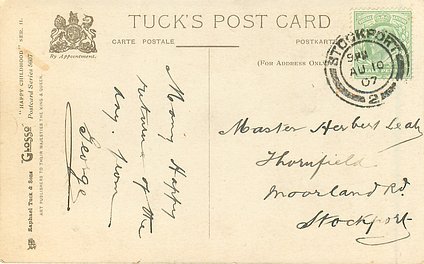 TUCK'S POST CARD
CARTE POSTALE
POSTKARTE
By Appointment.
(FOR ADDRESS ONLY)
STOCKPORT
9 PM
AU 10
07
2
Raphael Tuck & Sons
"GLOSSO"
"HAPPY CHILDHOOD" SER. II.
Postcard Series 5607
ART PUBLISHERS TO THEIR MAJESTIES THE KING & QUEEN.
Many Happy
returns of the
day. from
George
Master Herbert Leah
Thornfield
Moorland Rd.
Stockport